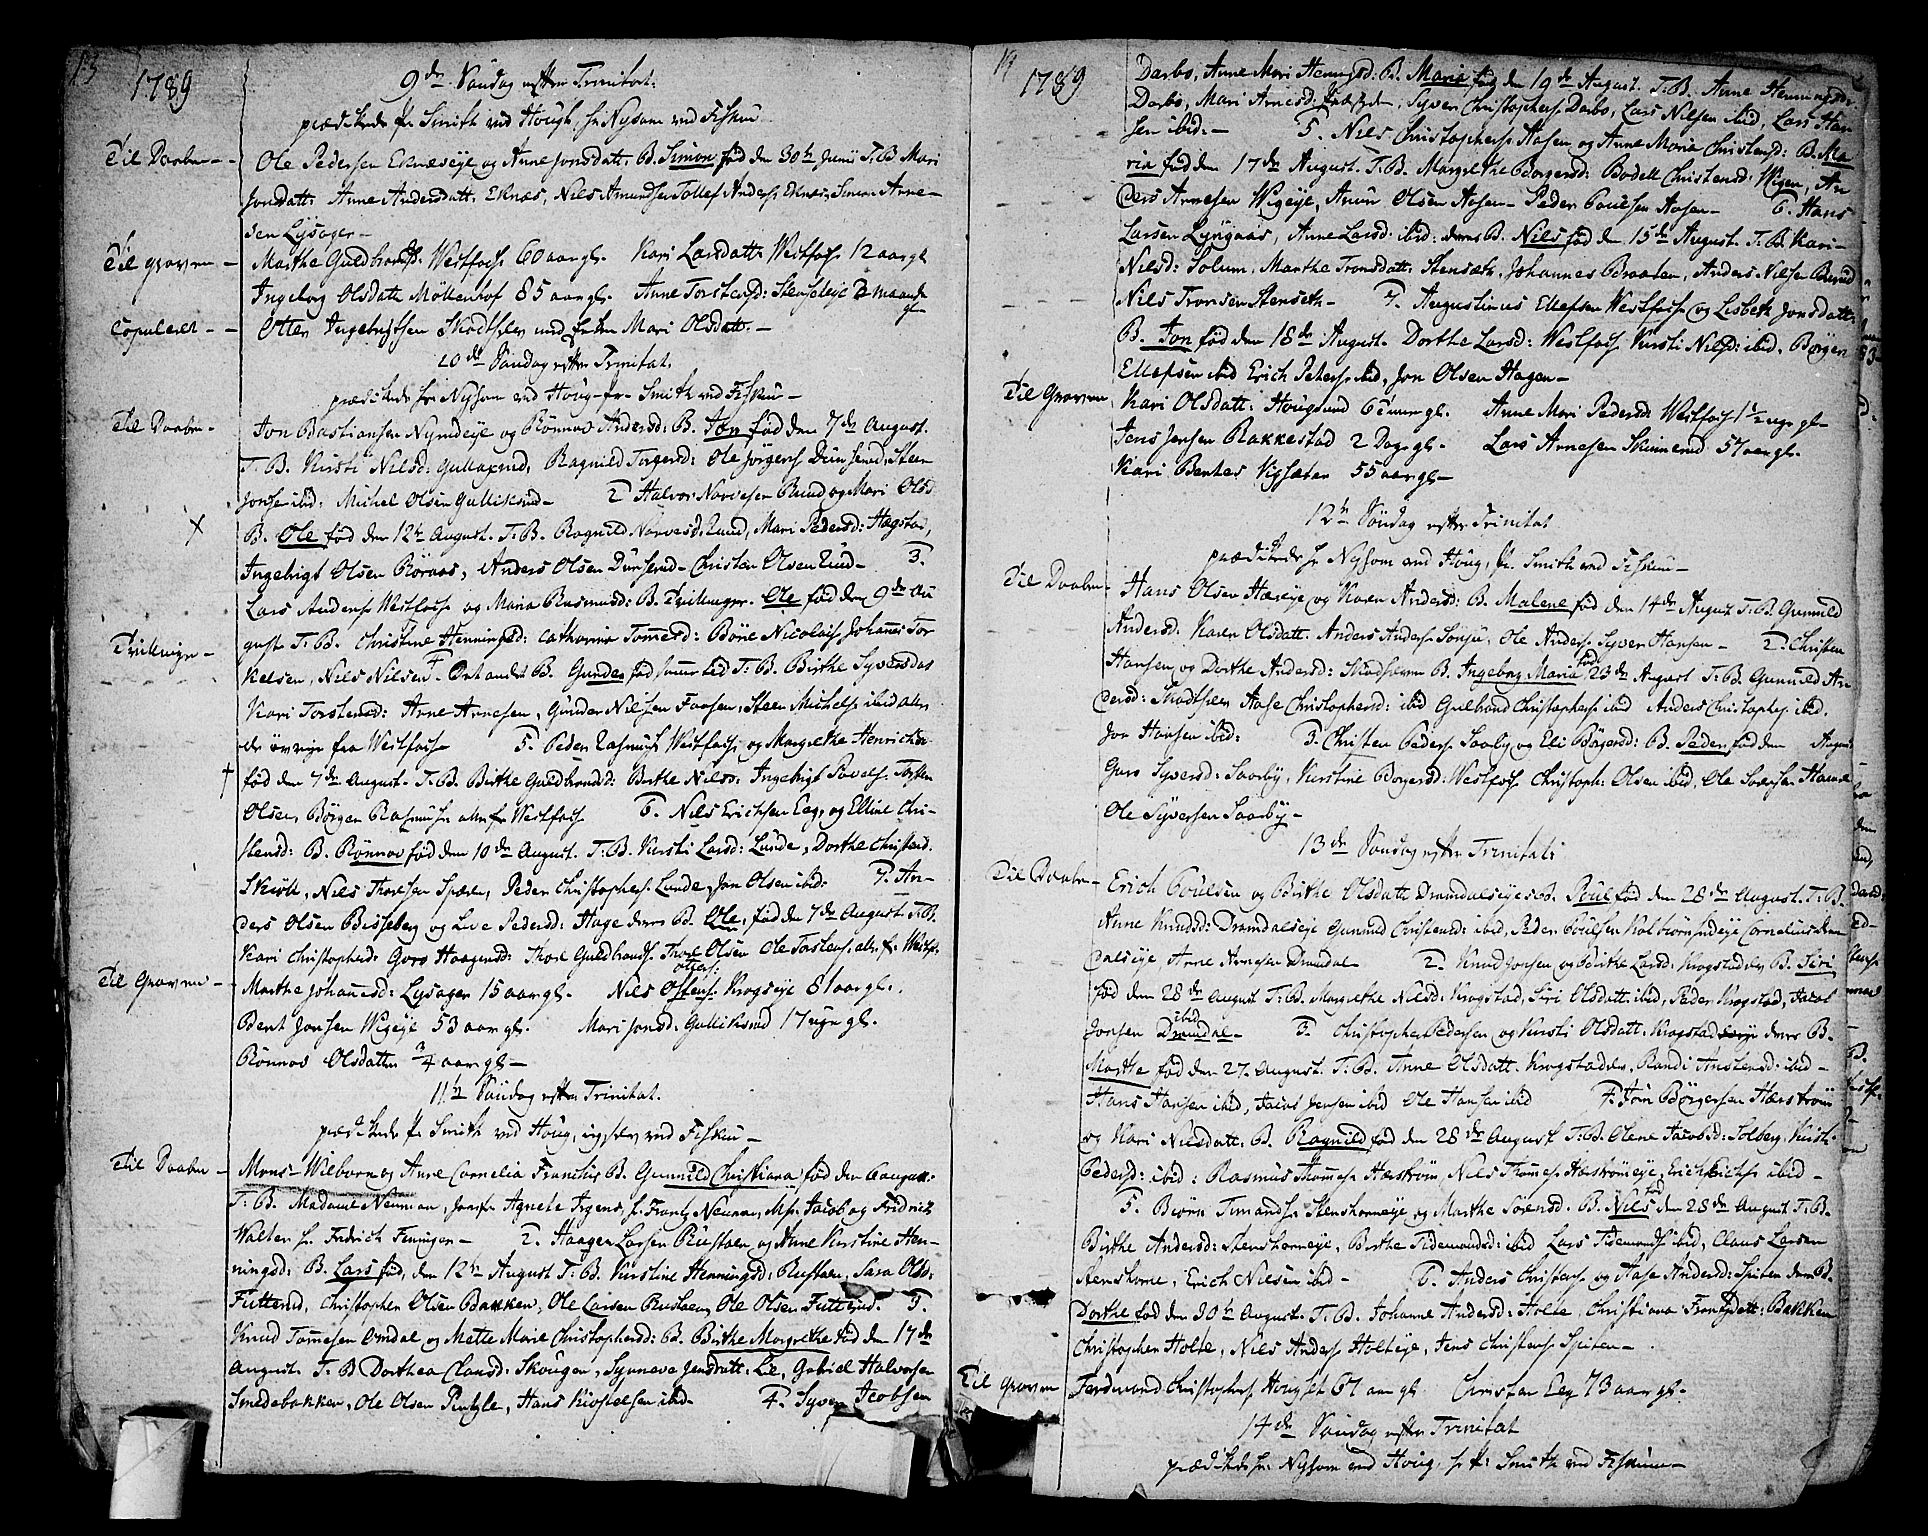 13
1789
9de Söndag efter Trinitat:
prædikede hr Smith ved Hougs, hr Nysom ved Fiskum
Til Daaben - Ole Pedersen Eknæseye og Anne Jonsdatt: B. Simon föd den 30te Junii T: B. Mari
Jonsdatt: Anne Andersdatt: Eknæs, Niels Amundsen Tollef Anders: Eknes, Simen Arne-
sen Lysager -
Til Graven - Marthe Guldbrandsd: Westfoss 60 aar gl. Kari Larsdatt: Westfoss 12 aar gl
Ingeborg Olsdatt: Möllenhof 85 aar gl. Anne Torstensd: Stenseteye 2 maaneder
gl-
Copuleret - Otter Ingebrigtsen Skodtselv med Enken Mari Olsdatt. -
10de Söndag efter Trinitat.
prædikede hr Nysom ved Houg - hr Smith ved Fiskum -
Til Daaben - Jon Bastiansen Nymoeye og Rönnov Andersd: B. Jon föd den 7de August.
T. B. Kirsti Nilsd: Gulliksrud, Ragnild Torgersd: Ole Jörgens: Dunserud, Steen
Jonsen ibid: Michel Olsen Gulliksrud - 2 Halvor Narvesen Ruud og Mari Olsd
B. Ole föd den 12te August. T. B. Ragnild Narvesd. Ruud, Mari Pedersd: Hægstad,
Ingebrigt Olsen Röraas, Anders Olsen Dunserud - Christen Olsen Ruud - 3.
Lars Anders: Westfoss og Maria Rasmusd: B. Tvillinger. Ole föd den 9de Au
gust T: B. Christine Henningsd: Cathrina Tommesd: Böne Nicolais: Johannes Tor
Tvillinger - kelsen, Nils Nilsen - 4 Det andet B. Gunder föd samme tid T: B. Birthe Syversdat
Kari Torstensd: Arne Arnesen, Gunder Nilsen Faasen, Steen Michels: ibid alle
de övrige fra Westfoss 5. Peder Rasmus: Westfoss og Margrethe Henrichs:
föd den 7de August. T. B. Birthe Guldbrandsd: Berthe Nilsd: Ingebrigt Povels: Torsten
Olsen, Börger Rasmus: alle fr Westfoss 6. Nils Erichsen Eeg, og Elline Chri-
stensd: B. Rönnov föd den 10de August. T. B. Kirsti Larsd: Lunde, Dorthe Christensd.
Skiöll, Nils Thoresen Spæren, Peder Christophers: Lunde, Jon Olsen ibid: 7. An-
ders Olsen Bisseberg og Live Pedersd: Hage deres B. Ole, föd den 7de August T: B.
Kari Christophersd: Goro Haagensd: Thore Guldbrands: Thore Olsen Ole Torstens. alle fr Westf:
Til Graven - Marthe Johannesd: Lysager 15 aar gl. Nils Ottersen Krogseye 81 aar gl.
Bent Jonsen Wigeye 53 aar gl. Mari Jonsd: Gulliksrud 17 uger gl.
Rönnov Olsdatter 3/4 aar gl -
11te Söndag efter Trinitat.
prædikede hr Smith ved Houg, ingen ved Fiskum -
Til Daaben - Mons: Wilborn og Anne Cornelia Franchis B. Gunnild Christiana föd den 6 August:
T. B. Madame Neuman, Jomfr Agnete Irgens, hr Frantz Neuman, Msr Jacob og Fridrich
Walter hr Fridrich Finniger - 2. Haagen Larsen Rustaen og Anne Kirstine Hen-
ningsd: B. Lars föd, den 12te August T: B. Kirstine Henningsd: Rustaen, Sara Olsd:
Futterud, Christopher Olsen Bakken, Ole Larsen Rustaen, Ole Olsen Futterud. 3.
Knud Tommesen Omdal og Mette Marie Christophersd: B. Birthe Margrethe föd den 17de
August. T. B Dorthea Clausd: Skougen, Synneve Jensdatt: Lie, Gabriel Halvorsen
Smedebakken, Ole Olsen Pintzle, Hans Kiostelsen ibid - 4. Syver Jacobsen
14
1789
Darbo, Anne Mari Hennigsd: B. Maria föd den 19de August. T. B. Anne Henningsdr
Darbo, Mari Arnesd: Syver Christophers: Darbo, Lars Nilsen ibid, Lars Han
sen ibid. - 5. Niels Christophers: Aasen og Anne Maria Christensd: B. Ma
ria föd den 17de August. T. B. Margrethe Borgersd: Bodell Christensd: Wigen, An
ders Arnesen Wigeye, Amun Olsen Aasen - Peder Poulsen Aasen - 6. Hans
Larsen Lyngaas, Anne Larsd: ibid: deres B. Niels föd den 15de August. T. B. Kari
Nielsd: Solum, Marthe Tronsdatt: Stenseth, Johannes Braaten, Anders Nilsen Berrud
Nils Tronsen Stenseth - 7. Augustinus Ellefsen Westfoss og Lisbeth Jonsdatt:
B. Jon föd den 18de August. Dorthe Larsd: Westfoss Kirsti Nilsd: ibid. Börger
Ellefsen ibid Erich Peters: ibid, Jon Olsen Hagen -
Til Graven Kari Olsdatt: Hougsund 61 aar gl. Anne Mari Pedersd: Westfoss 1 1/2 uge gl -
Jens Jensen Rakkestad 2 Dage gl - Lars Arnesen Skinnerud 57 aar gl.
Kari Bentes Vigsæter 55 aar gl -
12te Söndag efter Trinitat
prædikede hr Nysom ved Houg, hr Smith ved Fiskum -
Til Daaben - Hans Olsen Hæreye og Karen Andersd: B. Malene föd den 14de August T: B. Gunnild
Andersd. Karen Olsdatt. Anders Anders: Sönsu, Ole Anders: Syver Hansen - 2. Christen
Hansen og Dorthe Andersd: Skodselven B. Ingeborg Maria föd 23de August T: B. Gunnild An
dersd: Skodtselv Aase Christophersd: ibid Gulbrand Christophers: ibid Anders Christophs: ibid.
Jon Hansen ibid: 3. Christen Peders: Saaby og Eli Börgersd: B. Peder föd den August
Guro Syversd: Saarby, Kirstine Borgersd: Westfoss Christoph: Olsen ibid, Ole Svens: Hamre
Ole Syversen Saarby -
13de Söndag efter Trinitat:
Til Daaben - Erich Poulsen og Birthe Olsdatt: Dramdalseyes B. Poul föd den 28de August. T: B.
Anne Knudsd: Dramdalseye Gunnild Christensd: ibid, Peder Poulsen Kolbiörnsrudeye Cornelius Dram
dalseye, Arne Arnesen Dramdal 2. Knud Jonsen og Birthe Larsd: Krogstadelv, B. Siri
föd den 28de August T: B. Margrethe Nielsd: Krogstad, Siri Olsdatt: ibid, Peder Krogstad, Jacob
Jonsen ibid Dramdal - 3. Christopher Pedersen og Kirsti Olsdatt. Krogstad deres B.
Marthe föd den 27. August. T. B. Anne Olsdatt. Krogstadelv, Randi Anstensd: ibid -
Hans Hansen ibid, Jacob Jensen ibid Ole Hansen ibid 4. Jörn Börgersen Hærström
og Kari Nilsdatt: B. Ragnild föd den 28de August T: B. Olene Jacobsd: Solberg, Kirsti
Pedersd: ibid: Rasmus Thomes: Hærström, Nils Thomes: Hærströmeye, Erich Erichs: ibid -
5. Biörn Timands: Stenshorneye og Marthe Sörensd. B. Niels föd den 28de August T: B.
Birthe Andersd: Stenshorneye, Berthe Tidemandsd: ibid Lars Tidemands: ibid, Claus Larsen
Stenshorne, Erich Nielsen ibid - 6. Anders Christens: og Aase Andersd: Spiten deres B.
Dorthe föd den 30te August. T: B. Johanne Andersd: Holte, Christiana Frantzdatt: Bakken
Christopher Holte, Nils Anders: Holteye, Jens Christens: Spiten -
Til Graven Ferdinand Christophers: Hougset 67 aar gl Christen Eeg 73 aar gl.
14de Söndag efter Trinitat
prædikede hr: Nysom ved Houg, hr: Smith ved Fiskum -